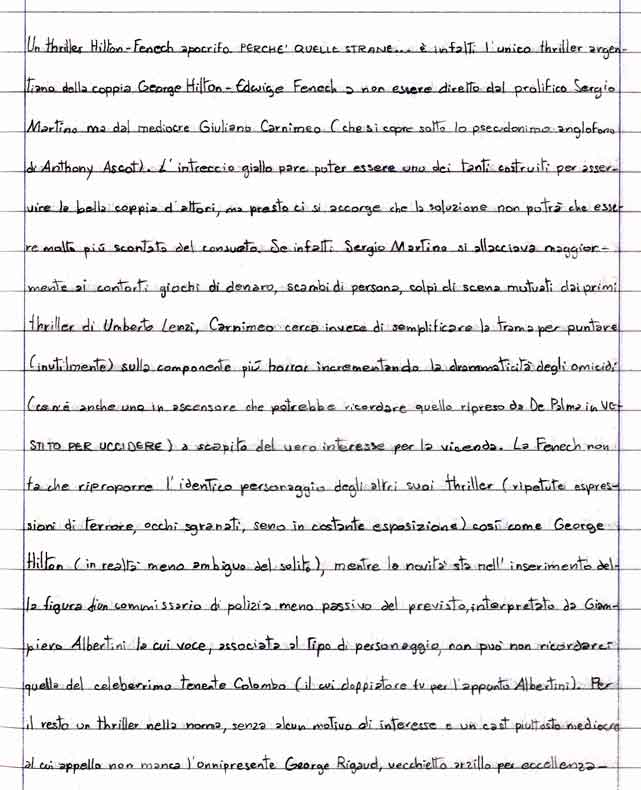 Un thriller Hilton-Fenech apocrifo. PERCHE' QUELLE STRANE... è infatti l'unico thriller argen-
tiano della coppia George Hilton-Edwige Fenech a non essere diretto dal prolifico Sergio
Martino ma dal mediocre Giuliano Carnimeo (che si copre sotto lo pseudonimo anglofono
di Anthony Ascot). L'intreccio giallo pare poter essere uno dei tanti costruiti per asser-
vire la bella coppia d'attori, ma presto ci si accorge che la soluzione non potrà che esse-
re molto più scontata del consueto. Se infatti Sergio Martino si allacciava maggior-
mente ai contorti giochi di denaro, scambi di persona, colpi di scena mutuati dai primi
thriller di Umberto Lenzi, Carnimeo cerca invece di semplificare la trama per puntare
(inutilmente) sulla componente più horror incrementando la drammaticità degli omicidi
(ce n'è anche uno in ascensore che potrebbe ricordare quello ripreso da De Palma in VE-
STITO PER UCCIDERE) a scapito del vero interesse per la vicenda. La Fenech non
fa che riproporre l'identico personaggio degli altri suoi thriller (ripetute espres-
sioni di terrore, occhi sgranati, seno in costante esposizione) così come George
Hilton (in realtà meno ambiguo del solito), mentre la novità sta nell'inserimento del-
la figura d'un commissario di polizia meno passivo del previsto, interpretato da Giam-
piero Albertini la cui voce, associata al tipo di personaggio, non può non ricordarci
quella del celeberrimo tenente Colombo (il cui doppiatore fu per l'appunto Albertini). Per
il resto un thriller nella norma, senza alcun motivo di interesse e un cast piuttosto mediocre
al cui appello non manca l'onnipresente George Rigaud, vecchietto arzillo per eccellenza-